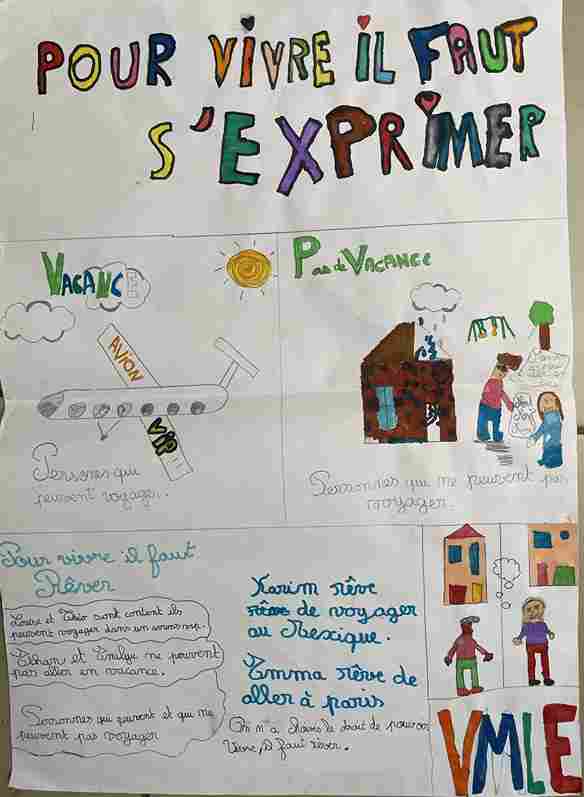 POUR VIVRE IL FAUT
S'EXPRIMER
VACANC
Pas de VACANCE
AVION
VIP
Persones qui
peuvent voyager.
Personnes qui ne peuvent pas
voyager.
Pour vivre il faut
Rêver
Louise et Théo sont content ils
peuvent voyager dans un avion vip.
Ethan et Emilye ne peuvent
pas aller en vacance.
Personnes qui peuvent et qui ne
peuvent pas voyager
Karim rêve
rêve de voyager
au Mexique.
Emma rêve de
aller à paris
On n'a le droit de pouvoir
vivre, il faut rêver.
VMLE